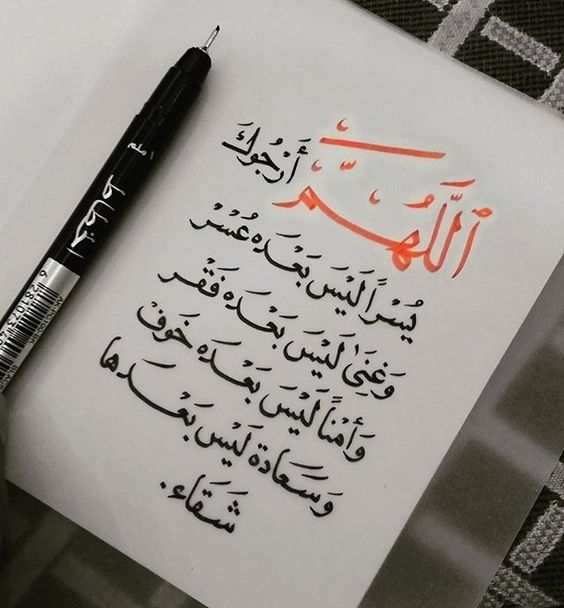 اَللّٰهُمَّ أَرْجُوكَ
يُسْرًا لَيْسَ بَعْدَه عُسْر
وَغِنىً لَيْسَ بَعْدَه فَقْر
وَأَمْنًا لَيْسَ بَعْدَه خَوفْ
وَسَعَادة لَيْس بَعْدَها
شَقَاء.
الخطاط